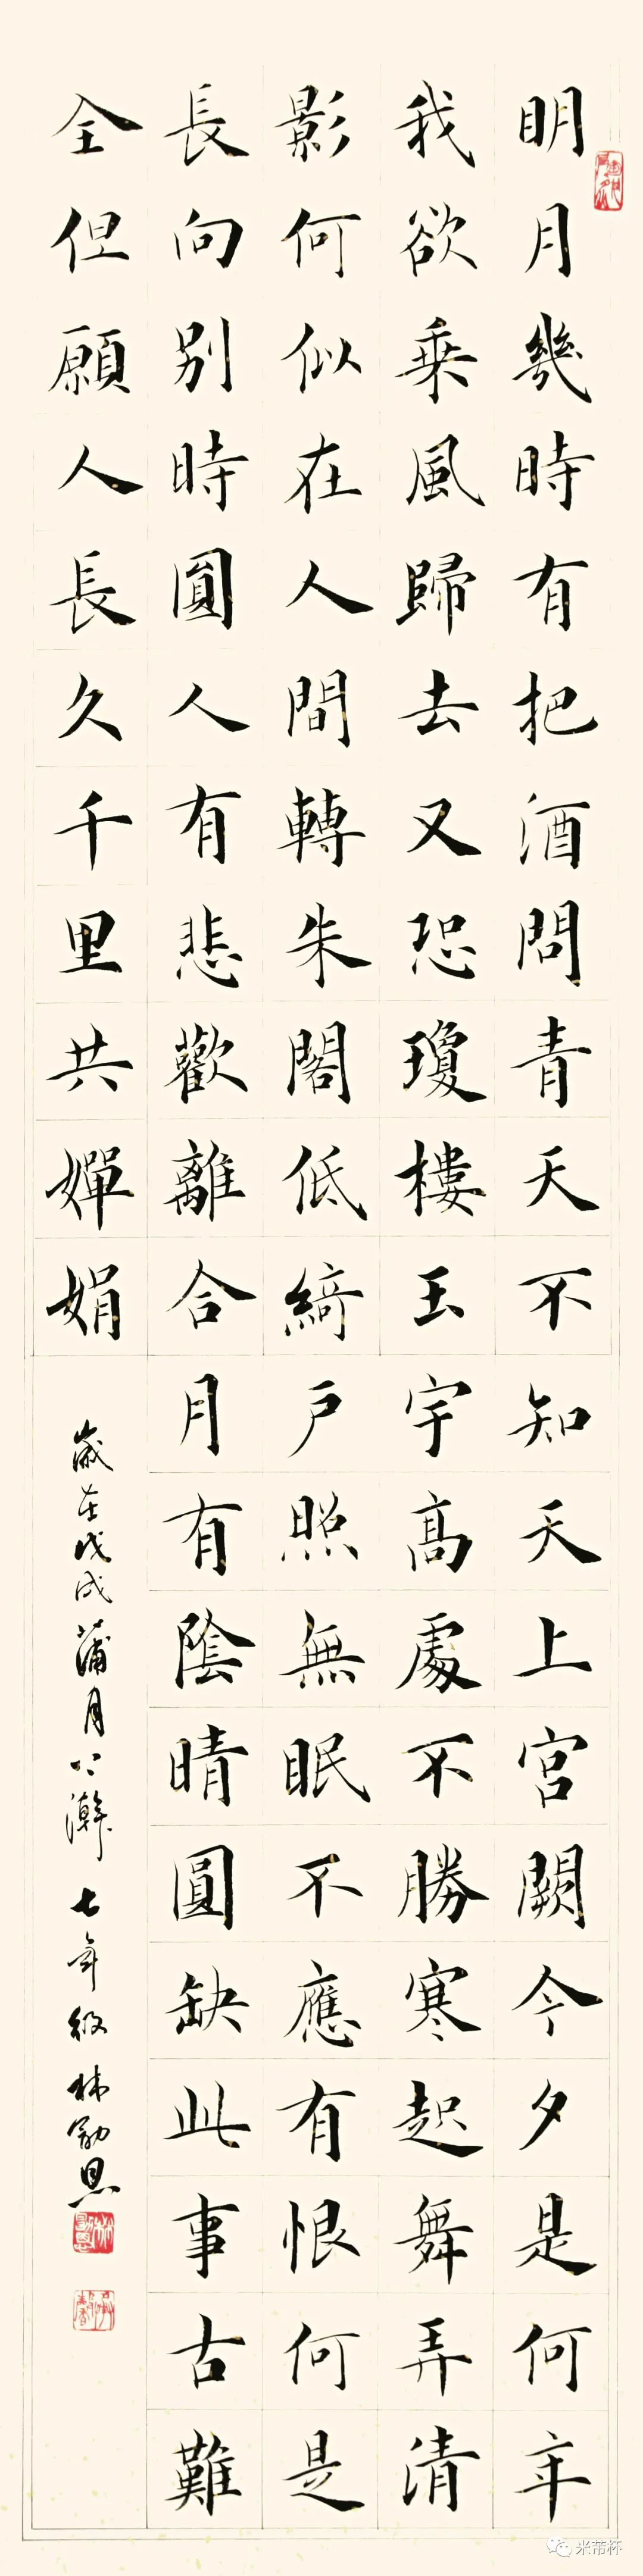 明月幾時有把酒問青天不知天上宮闕今夕是何年
我欲乘風歸去又恐瓊樓玉宇高處不勝寒起舞弄清
影何似在人間轉朱閣低綺戶照無眠不應有恨何是
長向別時圓人有悲歡離合月有陰晴圓缺此事古難
全但願人長久千里共嬋娟
歲在戊戌蒲月上澣七年級林恩
米芾杯